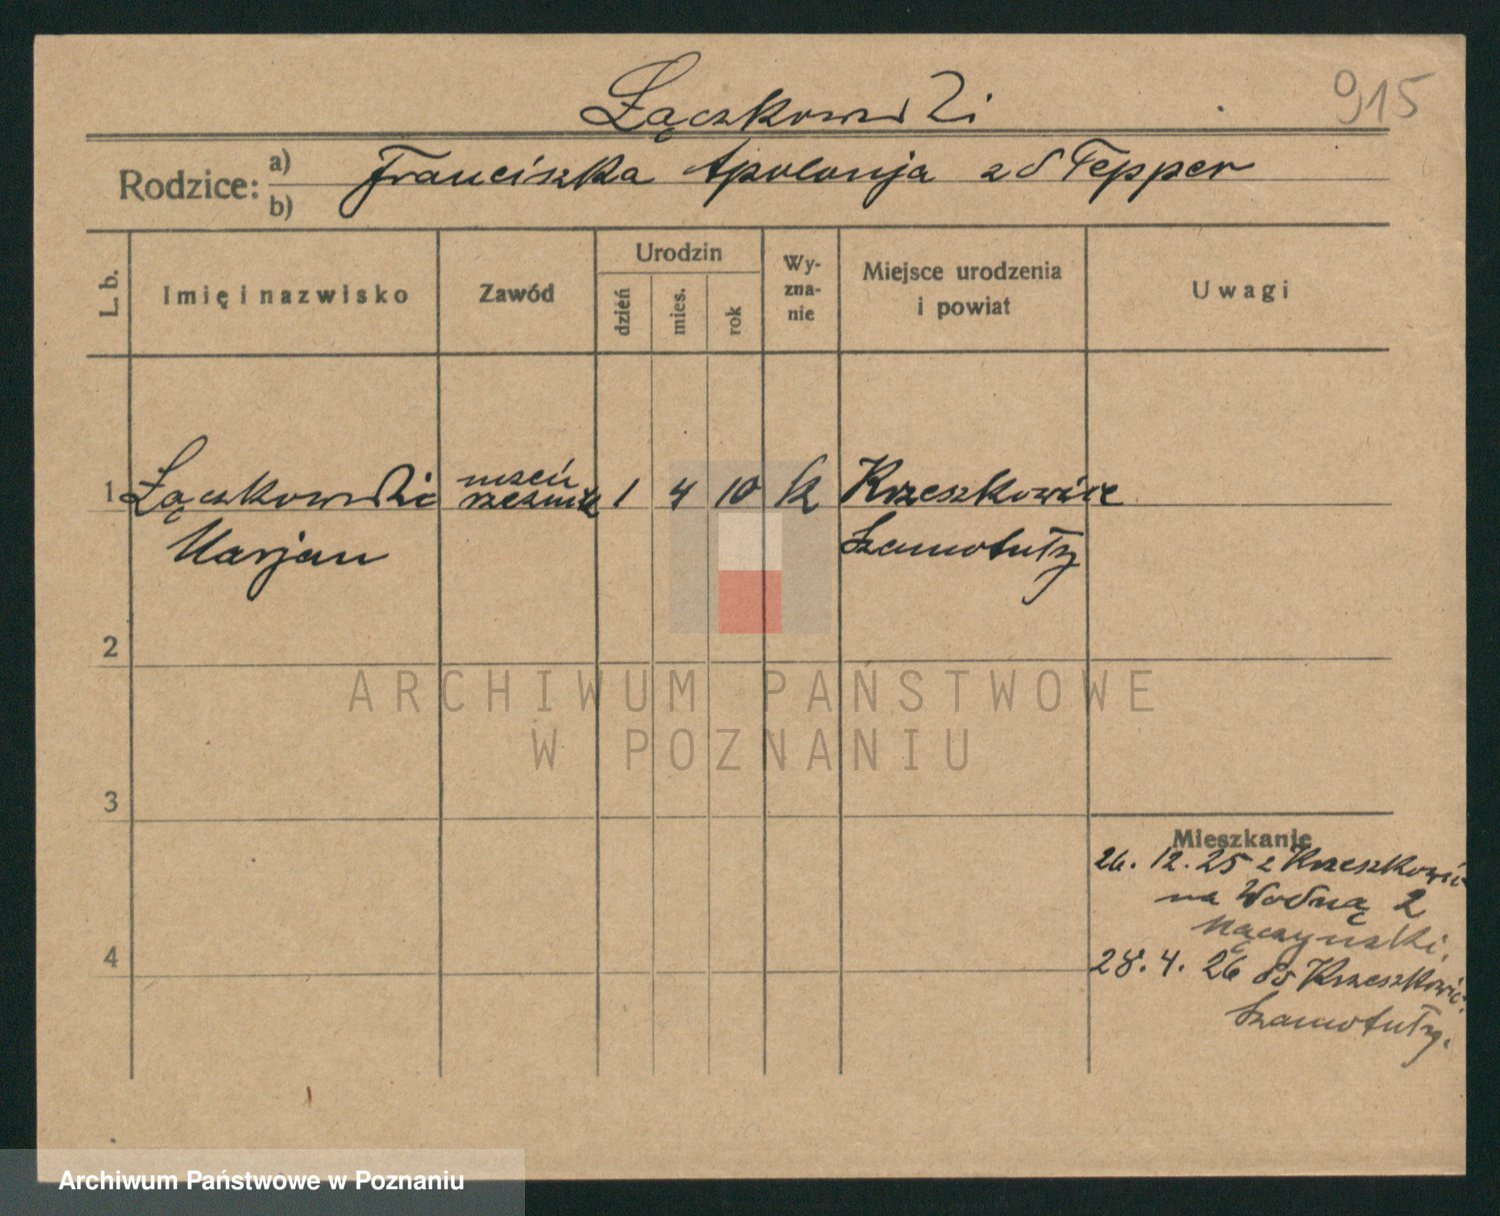 Łączkowski
915
Rodzice: a) b)
Franciszka Apolonja zd Tepper
L. b.
Imię i nazwisko
Zawód
Urodzin
dzień
mies.
rok
Wy-
zna-
nie
Miejsce urodzenia
i powiat
Uwagi
1 Łączkowski uczeń 1 4 10 k Krzeszkowice
rzeźnik
Marjan Szamotuły
2
3
4
Mieszkanie
26. 12. 25 z Krzeszkowic
na Wodną 2
Mączyński.
28. 4. 26 do Krzeszkowic
Szamotuły.
ARCHIWUM PAŃSTWOWE
W POZNANIU
Archiwum Państwowe w Poznaniu